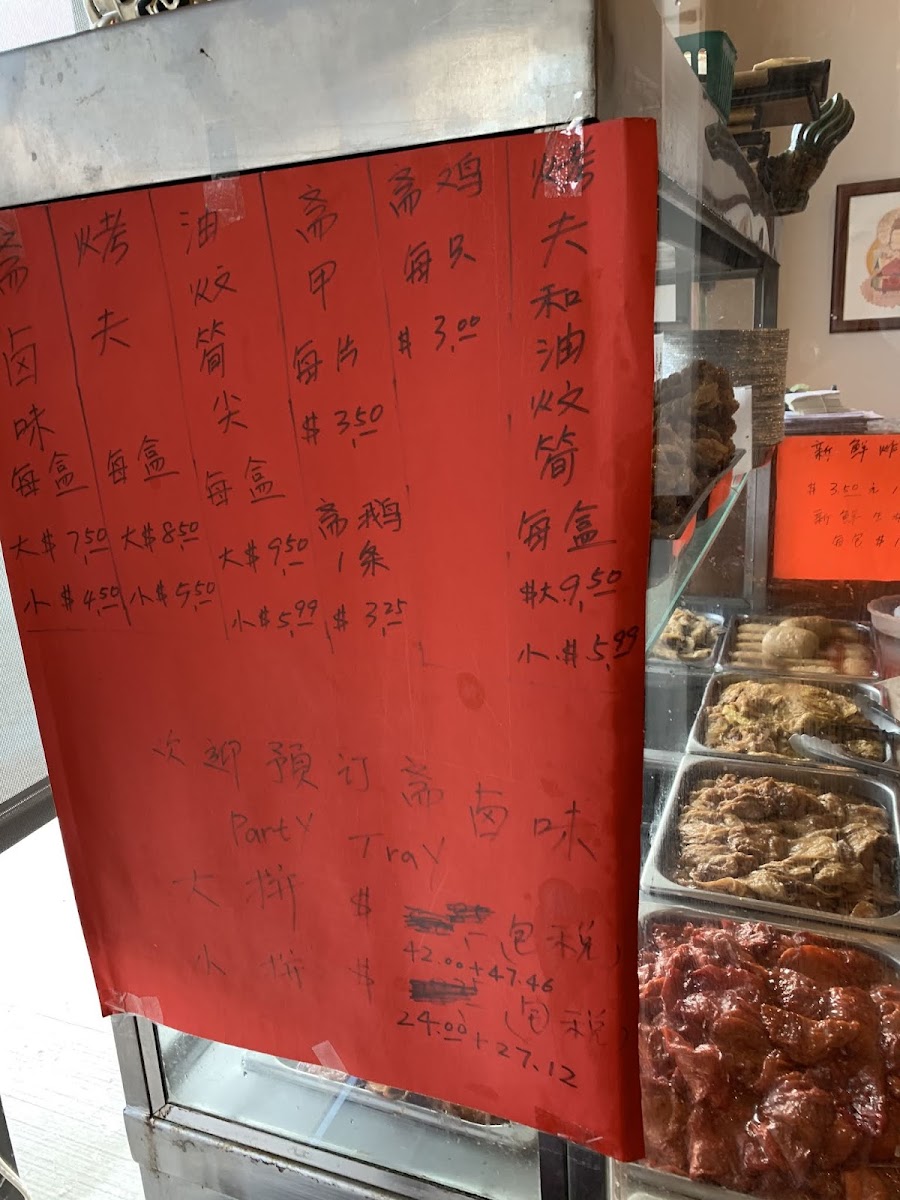 斋卤味每盒
大$7.50
小$4.50
烤夫每盒
大$8.50
小$5.50
油炆筒尖每盒
大$9.50
小$5.99
斋甲每片
$3.50
斋鹅
1条
$3.25
斋鸡
每只
$3.00
烤夫和油炆筒每盒
$大.9.50
小.$5.99
欢迎预订斋卤味
Party Tray
大拼 $
包税
42.00+47.46
小拼 $
包税
24.00+27.12
新鲜炸
$3.50元1
新鲜
每包$1